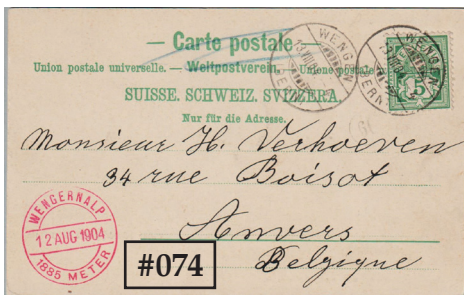 — Carte postale —
Union postale universelle. — Weltpostverein. — Unione postale
SUISSE. SCHWEIZ. SVIZZERA.
Nur für die Adresse.
WENGEN
WENGEN
5
Monsieur H. Verhoeven
34 rue Boisot
Anvers
Belgique
WENGERNALP
12 AUG 1904
1885 METER
#074